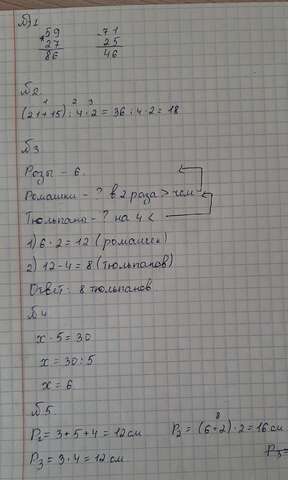 №1
+59 -71
27 25
86 46
№2.
1 2 3
(21+15):4·2=36:4·2=18
№3
Розы - 6.
Ромашки - ? в 2 раза > чем
Тюльпаны - ? на 4 <
1) 6·2=12 (ромашек)
2) 12-4=8 (тюльпанов)
Ответ: 8 тюльпанов
№4
x·5=30
x=30:5
x=6
№5.
P₁=3+5+4=12см P₂=(6+2)·2=16см
P₃=3·4=12см